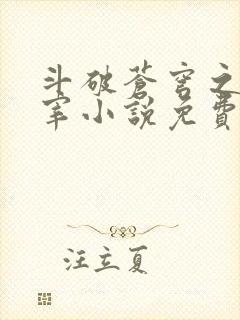 斗破蒼穹之
宰小說免費
汪立夏